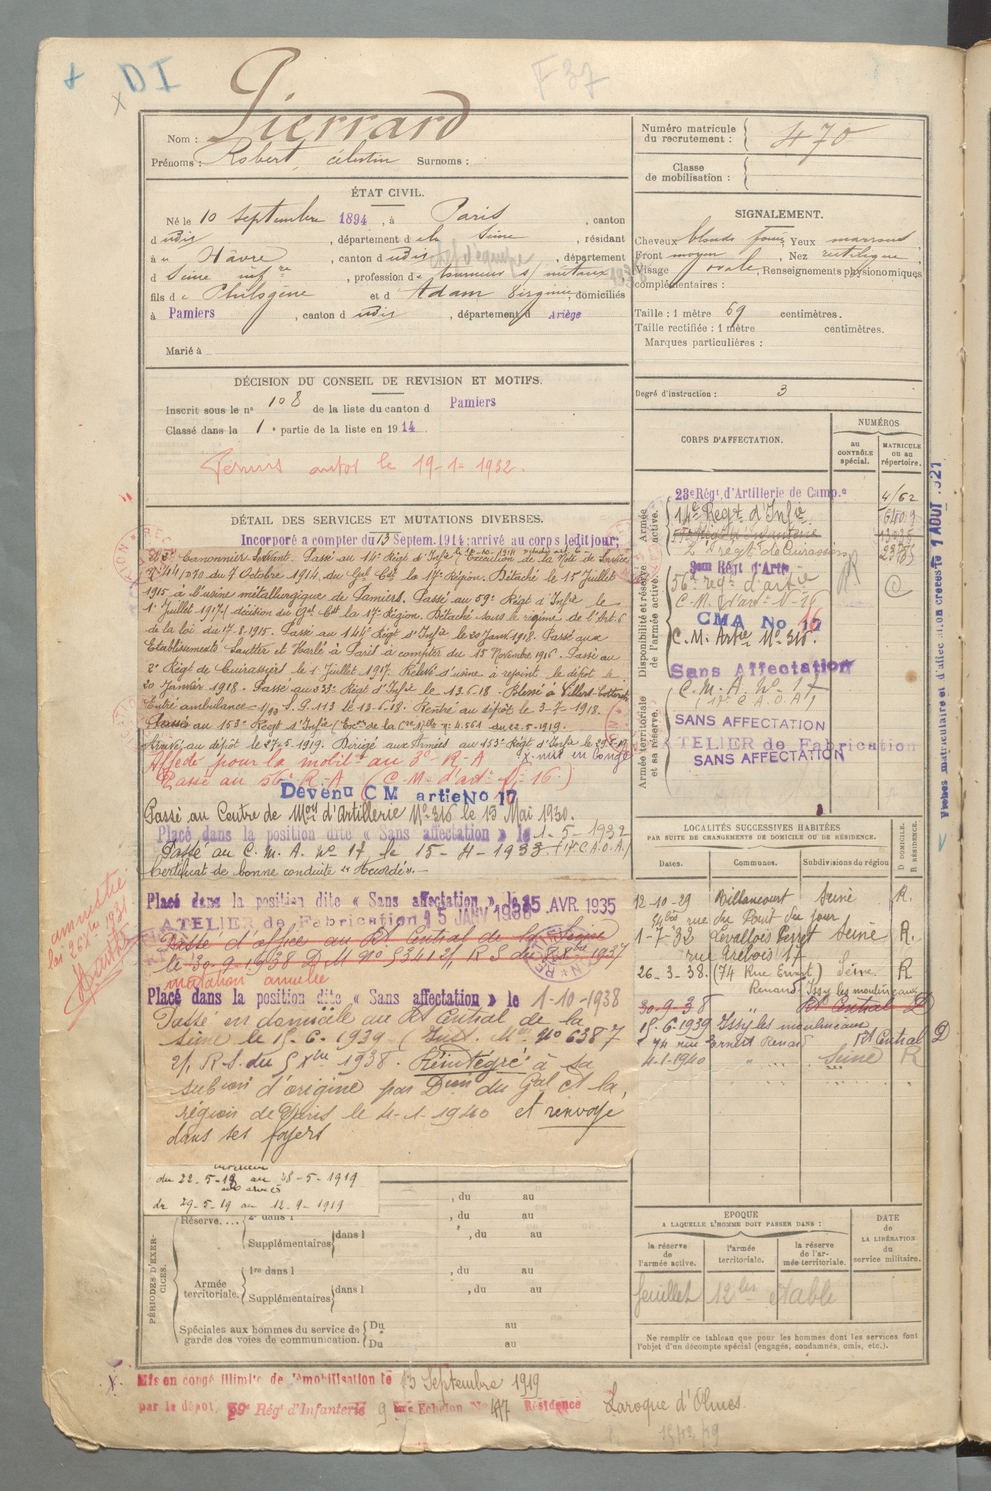 DI
F 37
Nom : Pierrard
Prénoms : Robert, Célestin Surnoms :
ÉTAT CIVIL.
Né le 10 Septembre 1894, à Paris, canton
d udis, département d e la Seine, résidant
à u Hâvre, canton d udis, département
d Seine infre, profession de tourneur s/ métaux
fils d e Philogène et d' Adam Virginie, domiciliés
à Pamiers, canton d udis, département d Ariège
Marié à
DÉCISION DU CONSEIL DE REVISION ET MOTIFS.
Inscrit sous le n° 108 de la liste du canton d Pamiers
Classé dans la 1e partie de la liste en 1914
Permis autos le 19-1-1932.
DÉTAIL DES SERVICES ET MUTATIONS DIVERSES.
Incorporé a compter du 13 Septem. 1914; arrivé au corps ledit jour;
Canonnier Servant. Passé au 14e Régt d'Infie Exécution de la Note de Service
du 7 Octobre 1914, du Gal Ct la 17e Région. Détaché le 15 Juillet
1915 à l'usine métallurgique de Pamiers. Passé au 59e Régt d'Infie le
1er Juillet 1917, décision du Gal Ct la 17e Région. Détaché sous le régime de l'Art. 6
de la loi du 17.8.1915. Passé au 144e Régt d'Infie le 20 Janv 1918. Passé aux
Etablissements Sautter et Harlé à Paris à compter du 15 Novembre 1916. Passé au
2e Régt de Cuirassiers le 1 Juillet 1917. Relevé d'usine a rejoint le dépôt le
20 Janvier 1918. Passé au 333e Régt d'Infie le 13.6.18. Blessé à Villers-Cotterets
Entré ambulance S.P. 113 le 13.6.18. Rentré au dépôt le 3-7-1918.
Passé au 153e Régt d'Infie (Exon de la Cre Mlle N° 4.561 du 22.5.1919.
Arrivé au dépôt le 27.5.1919. Dirigé aux Armées au 153e Régt d'Infie le 29.5.19
mis en congé
Affecté pour la mobilon au 3e R.A
Passé au 56e R.A (C.M. d'art N° 16)
Devenu C M artie No 17
Passé au Centre de Mon d'Artillerie N° 316 le 15 Mai 1930.
Placé dans la position dite « Sans affectation » le 1-5-1932
Passé au C. M. A. N° 17 le 15-4-1933 (17e C.A.O.A.)
Certificat de bonne conduite « Accordé ».
Placé dans la position dite « Sans affectation » le 15 AVR. 1935
ATELIER de Fabrication 15 JANV 1936
Passé d'office au Rt Central de la Seine
le 30-9-1938 D.M N° 5341 2/R S du 1937
mutation annulée
Placé dans la position dite « Sans affectation » le 1-10-1938
Passé en domicile au Rt Central de la
Seine le 15-6-1939 (Inst. Mle N° 6387
2/R.S. du 5 Xbre 1938. Réintégré à sa
subion d'origine par Don du Gal Ct la
région de Paris le 4-1-1940 et renvoyé
dans ses foyers
amnistié
loi 26 Xbre 1931
intérieur
du 22-5-19 au 28-5-1919
aux armées
du 29-5-19 au 12-9-1919
PÉRIODES D'EXERCICES.
Réserve.... 2e dans l , du au
Supplémentaires dans l , du au
Armée territoriale. 1re dans l , du au
Supplémentaires dans l , du au
Spéciales aux hommes du service de garde des voies de communication. Du au
Du au
Mis en congé illimité de démobilisation le 13 Septembre 1919
par le dépôt, 59e Régt d'Infanterie 9 Echelon No 447 Résidence Laroque d'Olmes
Numéro matricule du recrutement : 470
Classe de mobilisation :
SIGNALEMENT.
Cheveux blonds foncés Yeux marrons
Front moyen, Nez rectiligne
Visage ovale, Renseignements physionomiques
complémentaires :
Taille : 1 mètre 69 centimètres.
Taille rectifiée : 1 mètre centimètres.
Marques particulières :
Degré d'instruction : 3
CORPS D'AFFECTATION.
NUMÉROS
au CONTRÔLE spécial.
MATRICULE ou au répertoire.
Armée active.
23e Régt d'Artillerie de Campe 4162
14e Régt d'Infie 6409
2e régt de Cuirassiers
Disponibilité et réserve de l'armée active.
3em Régt d'Artie
56e régt d'artie
C.M. d'art N° 16
CMA No 17
C.M. Artie N° 316
Sans Affectation
C.M.A. N° 17
(17e C.A.O.A)
Armée territoriale et sa réserve.
SANS AFFECTATION
ATELIER de Fabrication
SANS AFFECTATION
LOCALITÉS SUCCESSIVES HABITÉES
PAR SUITE DE CHANGEMENTS DE DOMICILE OU DE RÉSIDENCE.
Dates. Communes. Subdivisions du région
D. DOMICILE. R. RÉSIDENCE.
12-10-29 Billancourt Seine R.
54bis rue du Point du jour
1-7-32 Levallois Perret Seine R.
rue Trébois 17
26-3-38. (74 Rue Ernest Seine. R
Renand) Issy les moulineaux
30-9-38 " Rt Central D
15-6-1939 Issy les moulineaux
74 rue Ernest Renand Rt Central D
4-1-1940 " Seine R
EPOQUE
A LAQUELLE L'HOMME DOIT PASSER DANS :
la réserve de l'armée active.
l'armée territoriale.
la réserve de l'armée territoriale.
DATE de LA LIBÉRATION du service militaire.
feuillet 12bis Nable
Ne remplir ce tableau que pour les hommes dont les services font
l'objet d'un décompte spécial (engagés, condamnés, omis, etc.).
Fiches matriculaire et d'affectation créées le 1 AOUT 1921